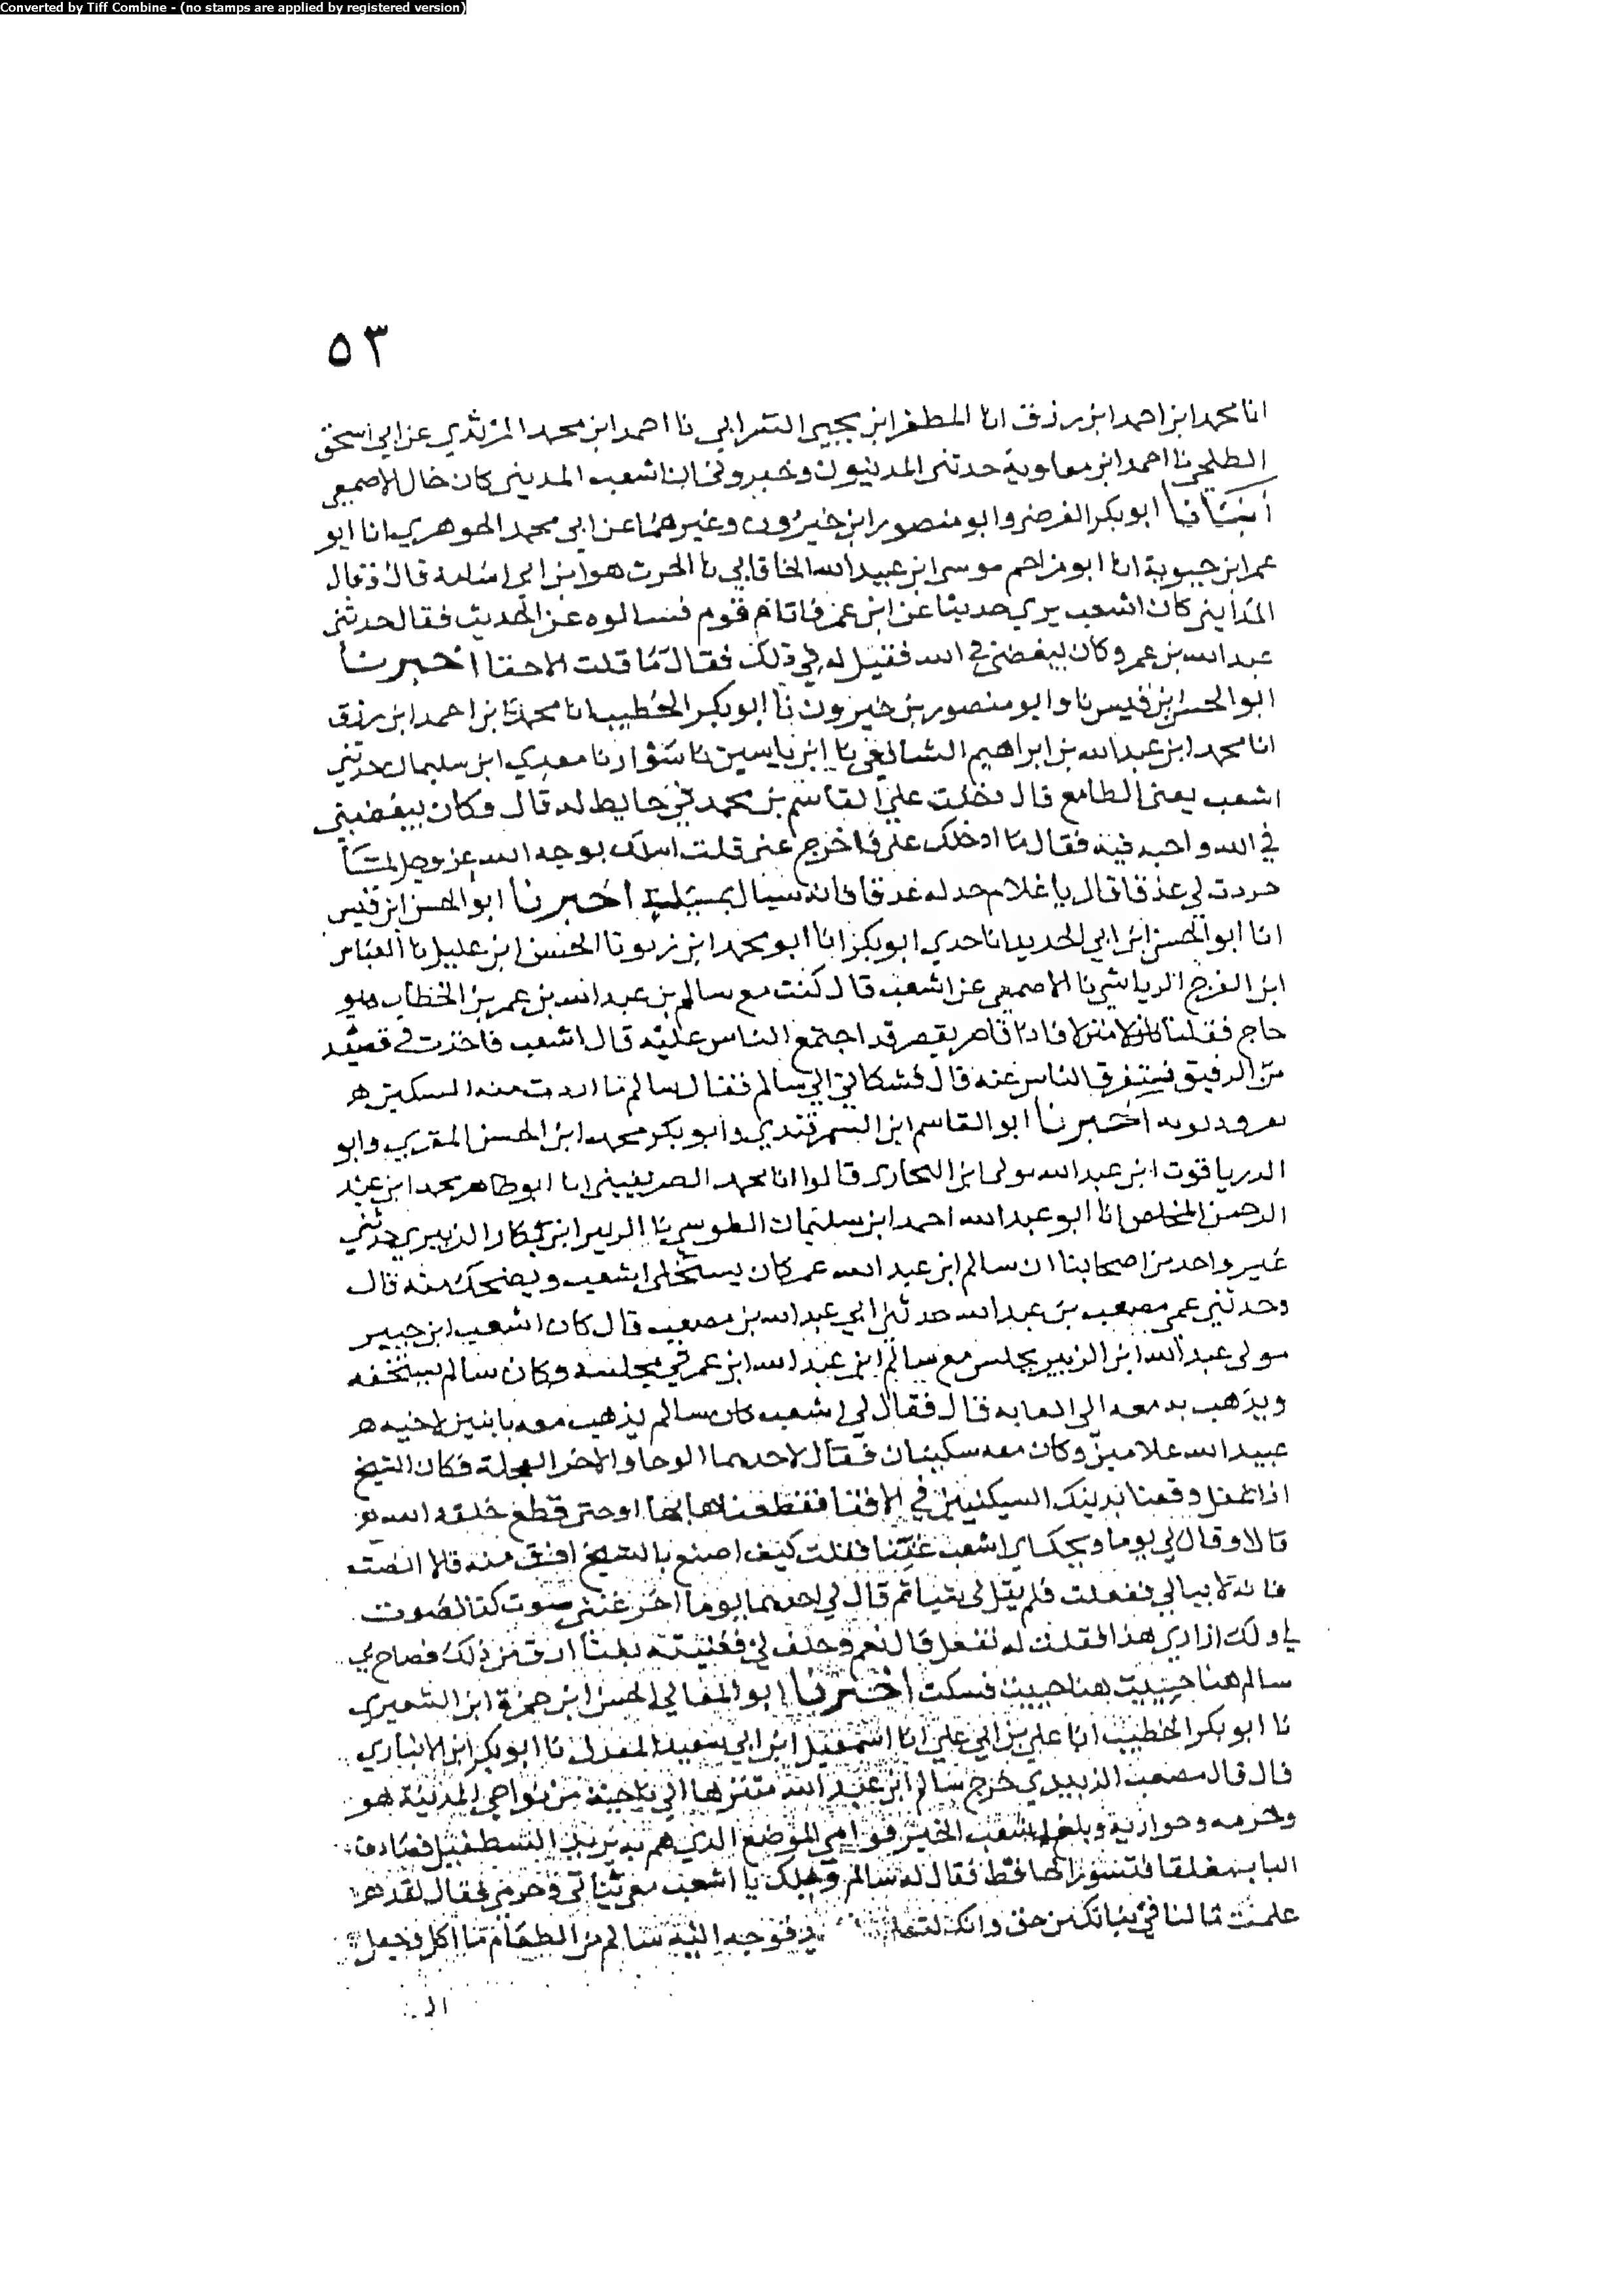 Converted by Tiff Combine - (no stamps are applied by registered version)
٥٣
انا محمد ابن احمد ابن رزق انا المظفر ابن يحيى الشرابي نا احمد ابن محمد المرثدي عن ابي اسحق
الطلحي نا احمد ابن معاوية حدثني المدنيون وخبروني ان اشعب المديني كان خال الاصمعي
أنبأنا ابو بكر الفرضي وابو منصور ابن خيرون وغيرهما عن ابي محمد الجوهري انا ابو
عمر ابن حيوية انا ابو مزاحم موسى ابن عبيد الله الخاقاني نا الحرث هو ابن ابي اسامة قال قال
المدايني كان اشعب يري حديثا عن ابن عمر فاتاه قوم فسالوه عن الحديث فقال حدثني
عبد الله بن عمر وكان يبغضني في الله فقيل له في ذلك فقال ما قلت الا حقا اخبرنا
ابو الحسن ابن قبيس نا وابو منصور بن خيرون نا ابو بكر الخطيب انا محمد ابن احمد ابن رزق
انا محمد ابن عبد الله بن ابراهيم الشافعي نا ابن ياسين نا سوار نا معدي ابن سليمان حدثني
اشعب يعني الطامع قال دخلت على القاسم بن محمد في حايط له قال وكان يبغضني
في الله واحبه فيه فقال ما ادخلك علي فاخرج عني قلت اسلك بوجه الله عز وجل لما
جددت لي عذقا قال يا غلام جد له عذقا فانه سال بمسئلة اخبرنا ابو الحسن ابن قبيس
انا ابو الحسن ابن ابي الحديد انا جدي ابو بكر انا ابو محمد ابن زبر نا الحسن ابن عليل نا العباس
ابن الفرج الرياشي نا الاصمعي عن اشعب قال كنت مع سالم بن عبد الله بن عمر بن الخطاب وهو
حاج فنزلنا منزلا فاذا قاص يقص قد اجتمع الناس عليه قال اشعب فاخذت في
من الدقيق فتفرق الناس عنه قال فشكاني الى سالم فقال سالم ما اردت من المسكين
اخبرنا ابو القاسم ابن السمرقندي وابو بكر محمد ابن الحسن المقري وابو
الدر ياقوت ابن عبد الله مولى ابن البخاري قالوا انا محمد الصريفيني انا ابو طاهر محمد ابن عبد
الرحمن المخلص انا ابو عبد الله احمد ابن سليمان الطوسي نا الزبير ابن بكار الزبيري حدثني
غير واحد من اصحابنا ان سالم ابن عبد الله عمر كان يستخلي اشعب ويضحك منه قال
وحدثني عمي مصعب بن عبد الله حدثني ابي عبد الله بن مصعب قال كان اشعب ابن جبير
مولى عبد الله ابن الزبير يجلس مع سالم ابن عبد الله ابن عمر في مجلسه وكان سالم يستخفه
ويذهب به معه الى الغابة قال فقال لي اشعب كان سالم يذهب معه بابنين لاخيه
عبيد الله غلامين وكان معه سكينان فقال لاحدهما الوحا والاخر العجلة فكان الشيخ
اذا غفل وقعنا بذينك السكينين في الافنا فقطعناها بها
قالا وقال لي يوما ويحك يا اشعب غننا فقلت كيف اصنع بالشيخ افرق منه قالا
فانه لا يبالي ففعلت فلم يقل لي شيا ثم قال لي احدهما يوما اخر غنني صوت كذا لصوت
نعم وحلف لي فغنيته ارق من ذلك فصاح بي
سالم هنا حبيبت هنا حبيبت فسكت اخبرنا ابو المعالي الحسن ابن حمزة ابن الشعيري
نا ابو بكر الخطيب انا علي بن ابي علي انا اسمعيل ابن ابي سعيد المعدل نا ابو بكر ابن الانباري
قال قال مصعب الزبيدي خرج سالم ابن عبد الله متنزها الى ناحية من نواحي المدينة هو
وحرمه وجواريه وبلغ اشعب الخبر فوافى الموضع الذي هم به يريد التطفيل فصادف
الباب مغلقا فتسور الحائط فقال له سالم ويلك يا اشعب معي بناتي وحرمي فقال لقد
علمت ما لنا في بناتك من حق وانك لتعلم فوجه اليه سالم من الطعام ما اكل وحمل
الى